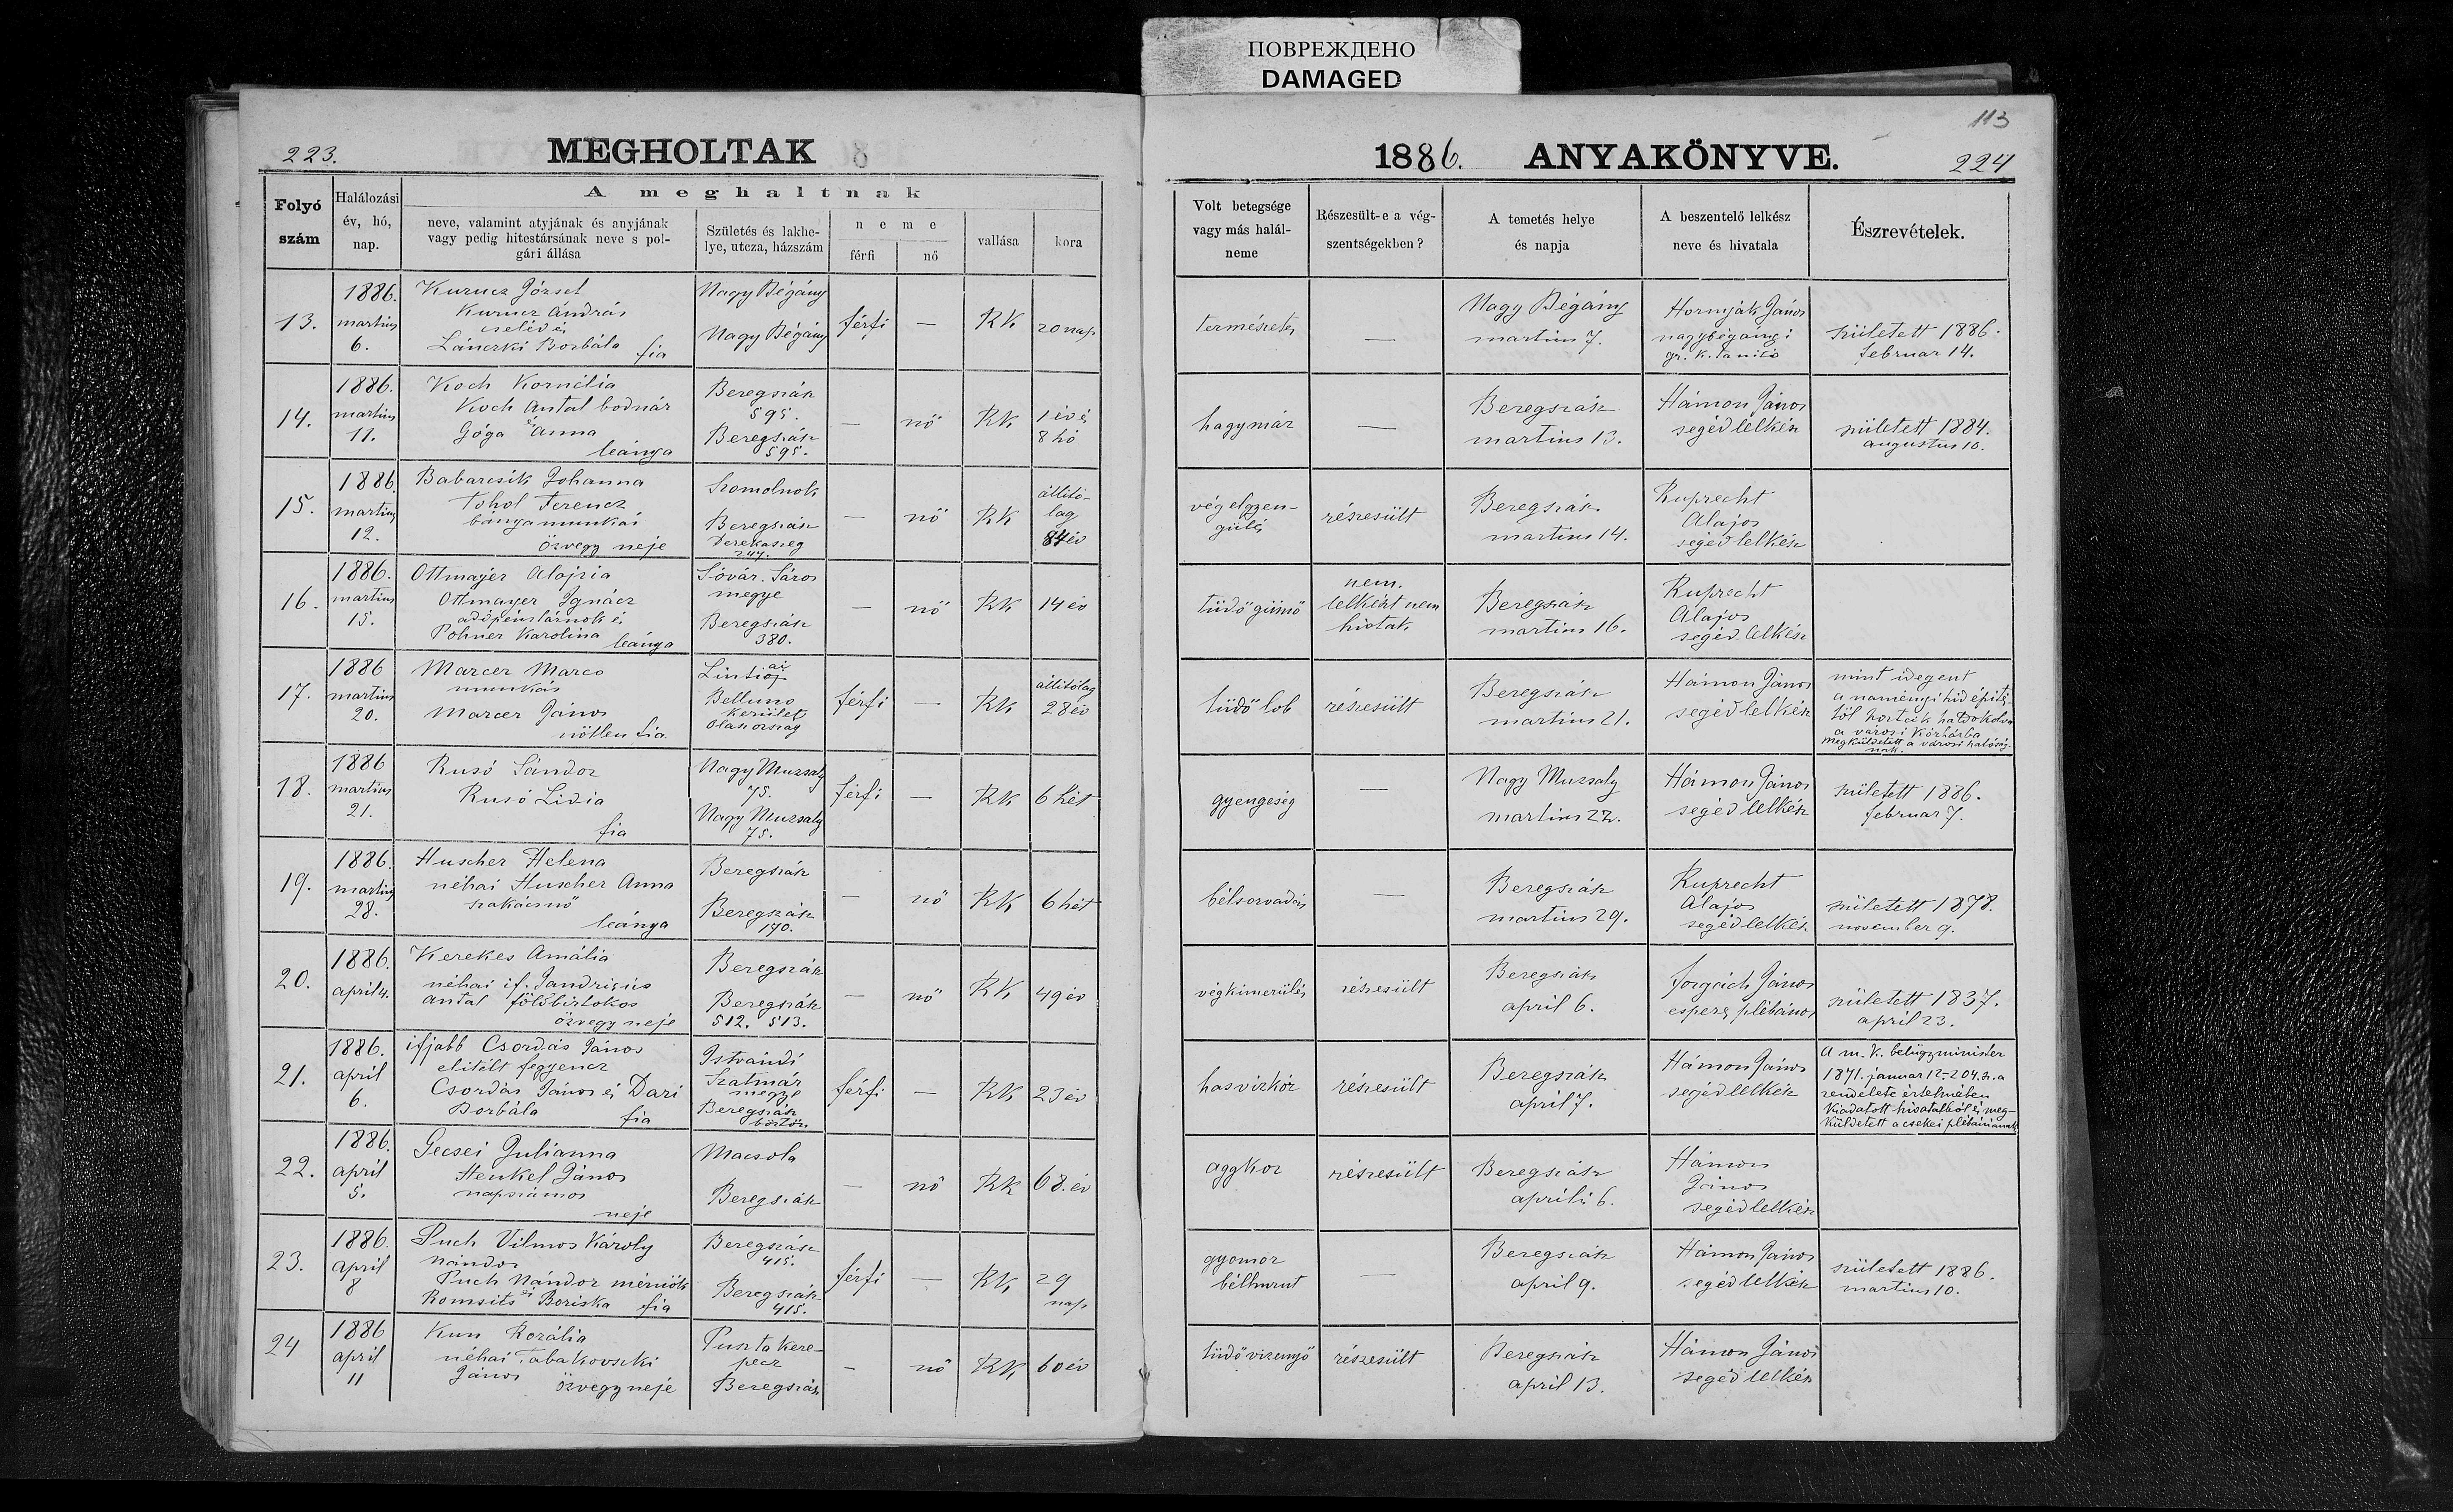 ПОВРЕЖДЕНО
DAMAGED
113
223.
MEGHOLTAK
1886. ANYAKÖNYVE.
224
Folyó szám
Halálozási év, hó, nap.
A meghaltnak
neve, valamint atyjának és anyjának
vagy pedig hitestársának neve s pol-
gári állása
Születés és lakhe-
lye, utcza, házszám
neme
férfi
nő
vallása
kora
Volt betegsége
vagy más halál-
neme
Részesült-e a vég-
szentségekben?
A temetés helye
és napja
A beszentelő lelkész
neve és hivatala
Észrevételek.
13.
1886.
martius
6.
Kurucz József
Kurucz András
cseléd és
Lánczki Borbála fia
Nagy Bégány
Nagy Bégány
férfi
—
RK
20 nap
természetes
—
Nagy Bégány
martius 7.
Hornyják János
nagybégányi
gr. k. tanitó
született 1886.
februar 14.
14.
1886.
martius
11.
Koch Kornélia
Koch Antal bodnár
és
Góga Anna
leánya
Beregszász
595.
Beregszász
595.
—
nő
RK
1 év és
8 hó
hagymáz
—
Beregszász
martius 13.
Hámon János
segédlelkész
született 1884.
augustus 10.
15.
1886.
martius
12.
Babarcsik Johanna
Tohol Ferencz
bányamunkás
özvegy neje
Szomolnok
Beregszász
Derekaszeg
244.
—
nő
RK
állító-
lag
84 év
vég elgyen-
gülés
részesült
Beregszász
martius 14.
Ruprecht
Alajos
segédlelkész
16.
1886.
martius
15.
Ottmayer Alojzia
Ottmayer Ignácz
adópénztárnok és
Pohner Karolina
leánya
Sóvár. Sáros
megye
Beregszász
380.
—
nő
RK
14 év
tüdőgümő
nem.
lelkészt nem
hivtak
Beregszász
martius 16.
Ruprecht
Alajos
segédlelkész
17.
1886
martius
20.
Marcer Marco
munkás
Marcer János
nőtlen fia
Lintiai
Belluno
kerület
Olaszország
férfi
—
RK
állitólag
28 év
tüdőlob
részesült
Beregszász
martius 21.
Hámon János
segédlelkész
mint idegent
a naményi hid épités-
től hozták haldokolva
a városi kórházba
megküldetett a városi hatóság-
nak.
18.
1886
martius
21.
Rusó Sándor
Rusó Lidia
fia
Nagy Muzsaly
75.
Nagy Muzsaly
75.
férfi
—
RK
6 hét
gyengeség
—
Nagy Muzsaly
martius 22.
Hámon János
segédlelkész
született 1886.
februar 7.
19.
1886.
martius
28.
Huscher Helena
néhai Huscher Anna
szakácsnő
leánya
Beregszász
Beregszász
170.
—
nő
RK
6 hét
bélsorvadás
—
Beregszász
martius 29.
Ruprecht
Alajos
segédlelkész
született 1878.
november 9.
20.
1886.
april 4.
Kerekes Amália
néhai if. Jandrisics
Antal földbirtokos
özvegy neje
Beregszász
Beregszász
512. 513.
—
nő
RK
49 év
végkimerülés
részesült
Beregszász
april 6.
Forgách János
esperes plébános
született 1837.
april 23.
21.
1886.
april
6.
ifjabb Csordás János
elitélt fegyencz
Csordás János és Dari
Borbála fia
Istvándi
Szatmár
megye
Beregszász
börtön.
férfi
—
RK
23 év
hasvizkór
részesült
Beregszász
april 7.
Hámon János
segédlelkész
A m. k. belügyminister
1871. januar 12-204. sz. a
rendelete értelmében
kiadatott hivatalból és meg-
küldetett a csekei plébániának
22.
1886.
april
5.
Gecsei Julianna
Henkel János
napszámos
neje
Macsola
Beregszász
—
nő
RK
68. év
aggkor
részesült
Beregszász
április 6.
Hámon
János
segédlelkész
23.
1886.
april
8
Puch Vilmos Károly
Nándor
Puch Nándor mérnök
és
Romsits Boriska fia
Beregszász
415.
Beregszász
415.
férfi
—
RK
29
nap
gyomor
bélhurut
—
Beregszász
april 9.
Hámon János
segédlelkész
született 1886.
martius 10.
24
1886
april
11
Kun Rozália
néhai Tabakovszki
János
özvegy neje
Puszta Kere-
pecz
Beregszász
—
nő
RK
60 év
tüdővizenyő
részesült
Beregszász
april 13.
Hámon János
segédlelkész